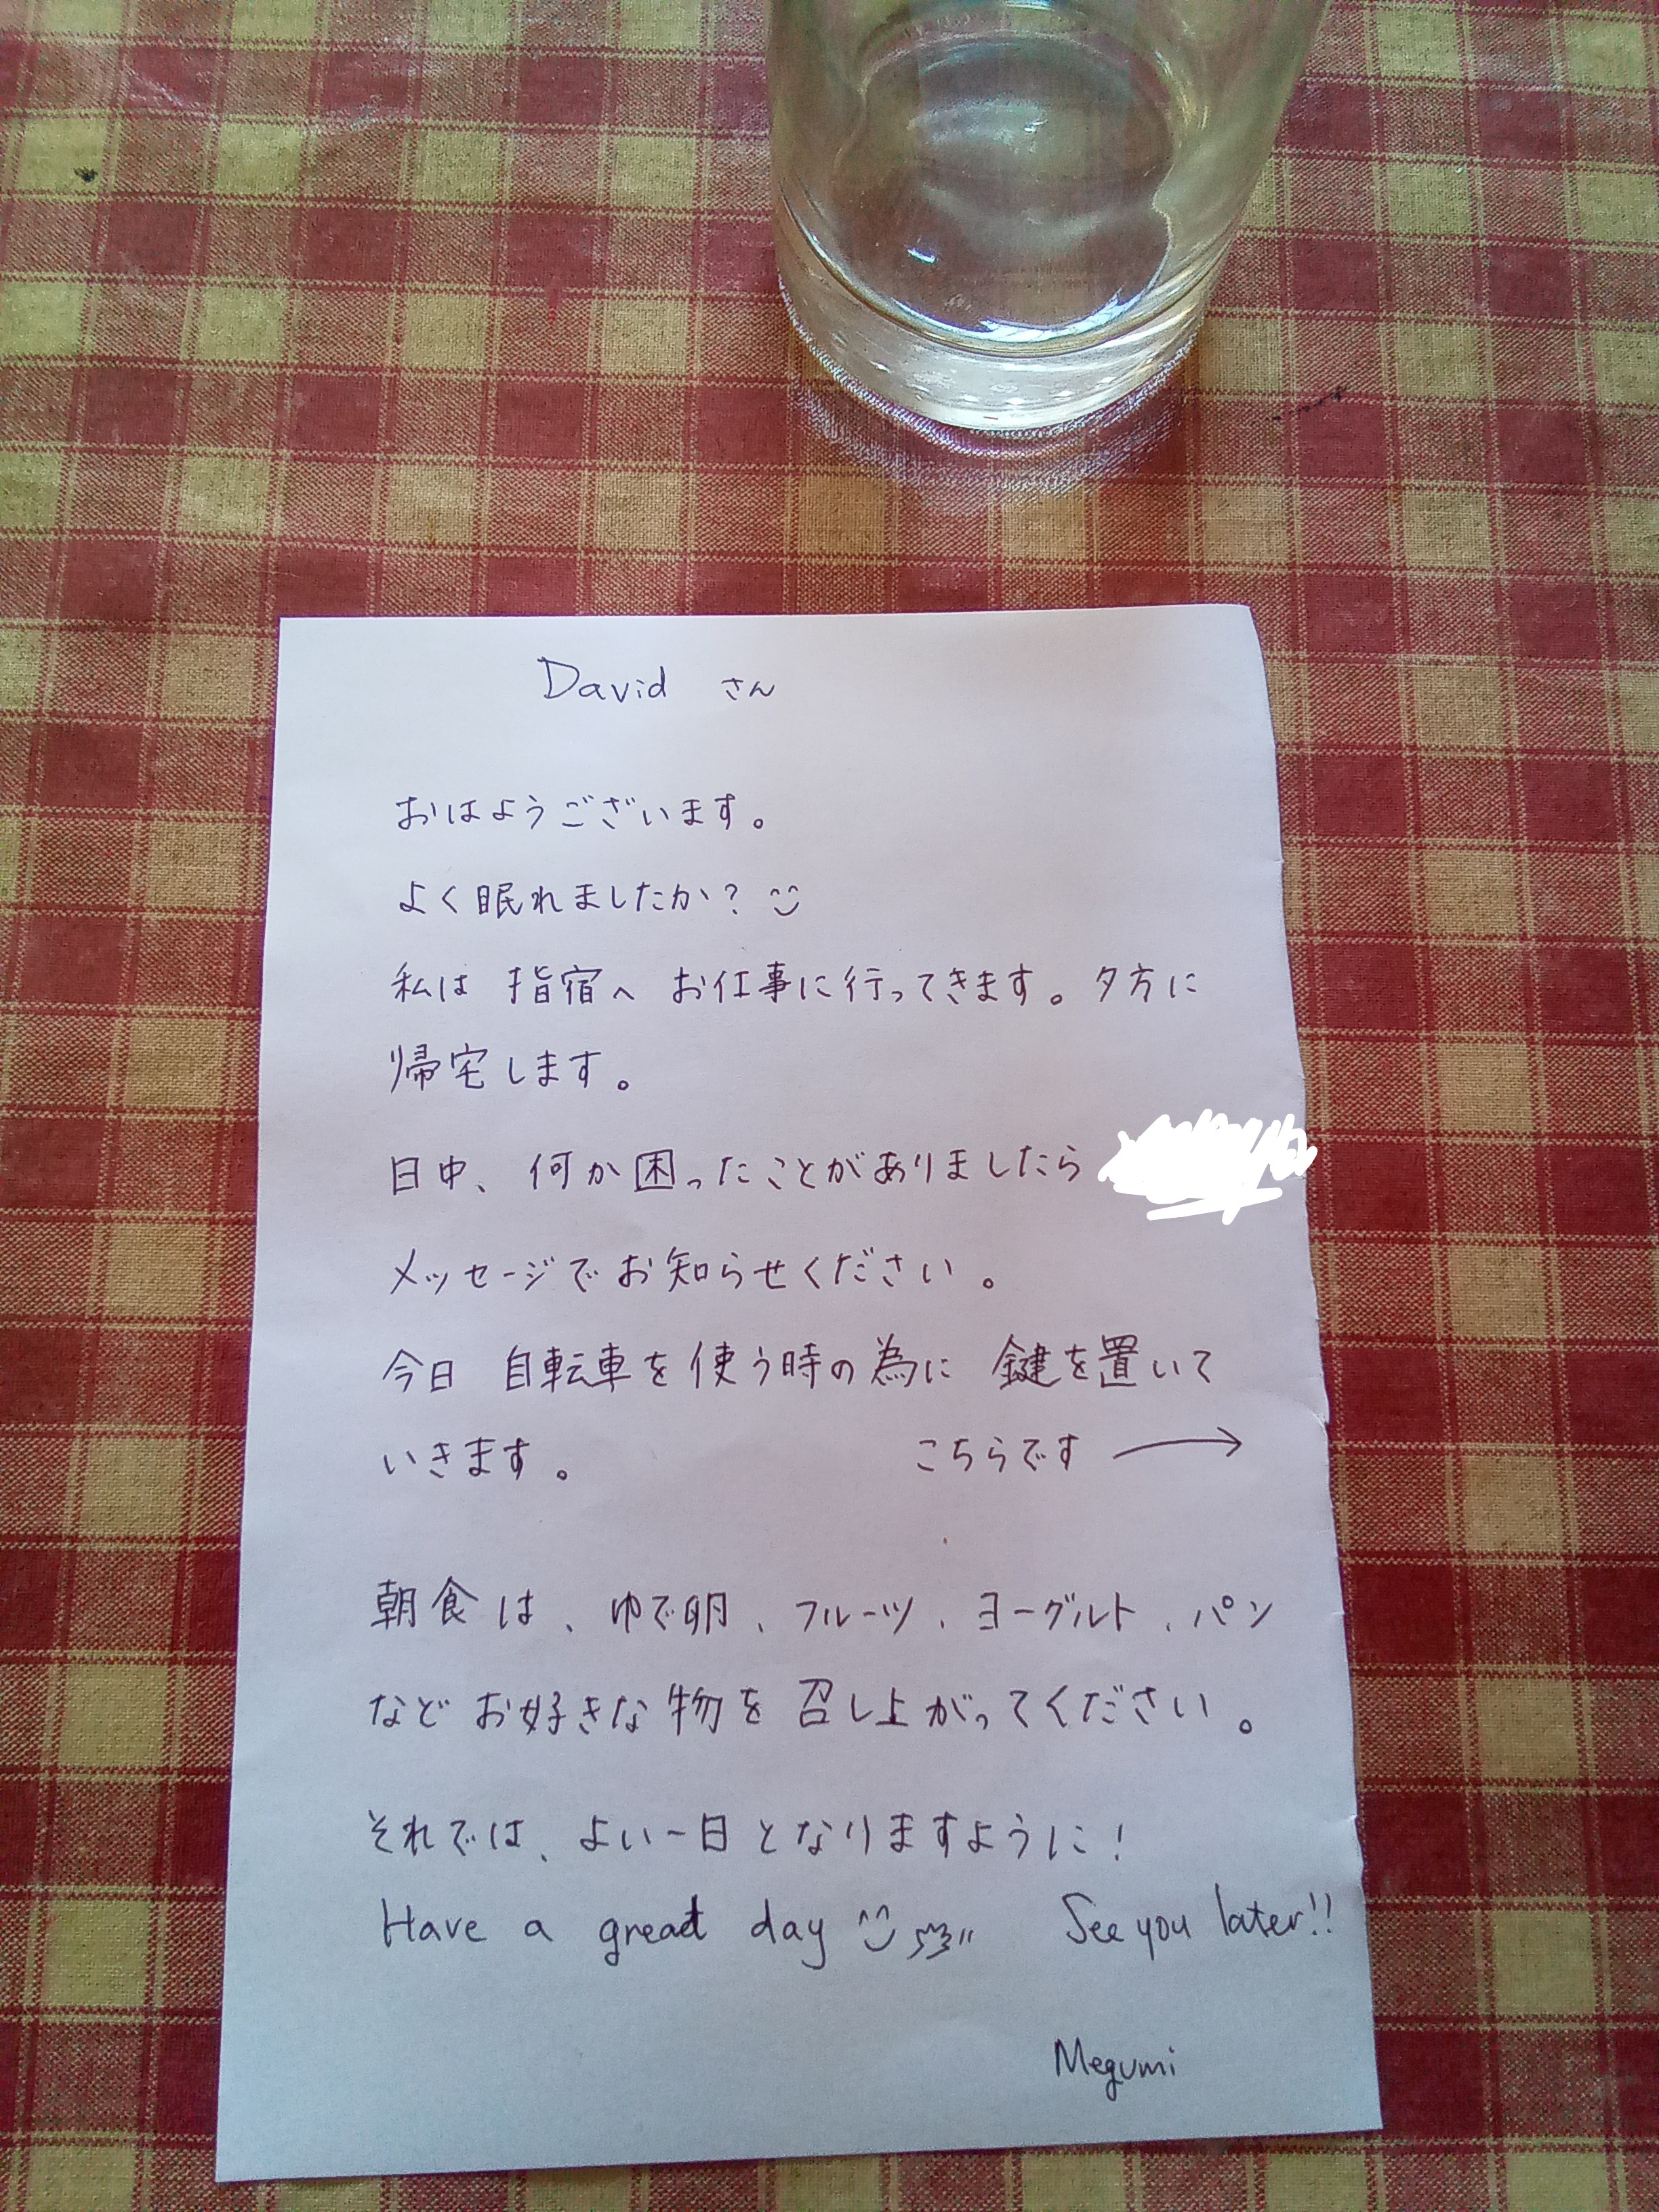 David さん
おはようございます。
よく眠れましたか?
私は 指宿へ お仕事に行ってきます。夕方に
帰宅します。
日中、何か困ったことがありましたら
メッセージでお知らせください。
今日 自転車を使う時の為に 鍵を置いて
いきます。 こちらです →
朝食は、ゆで卵、フルーツ、ヨーグルト、パン
など お好きな物を 召し上がってください。
それでは、よい一日となりますように!
Have a great day See you later!!
Megumi